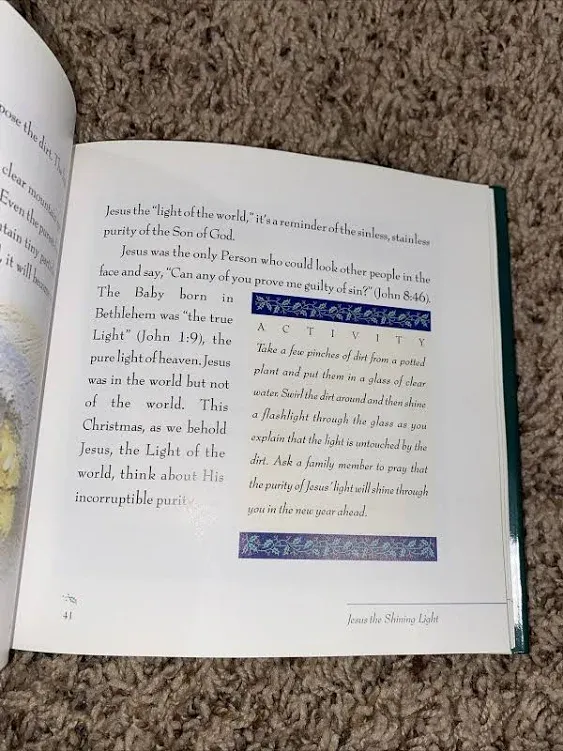 pose the dirt. The
clear mountain
Even the pures
ntain tiny part
, it will becom
Jesus the "light of the world," it's a reminder of the sinless, stainless
purity of the Son of God.
Jesus was the only Person who could look other people in the
face and say, "Can any of you prove me guilty of sin?" (John 8:46).
The Baby born in
Bethlehem was "the true
Light" (John 1:9), the
pure light of heaven. Jesus
was in the world but not
of the world. This
Christmas, as we behold
Jesus, the Light of the
world, think about His
incorruptible purity
ACTIVITY
Take a few pinches of dirt from a potted
plant and put them in a glass of clear
water. Swirl the dirt around and then shine
a flashlight through the glass as you
explain that the light is untouched by the
dirt. Ask a family member to pray that
the purity of Jesus' light will shine through
you in the new year ahead.
41
Jesus the Shining Light